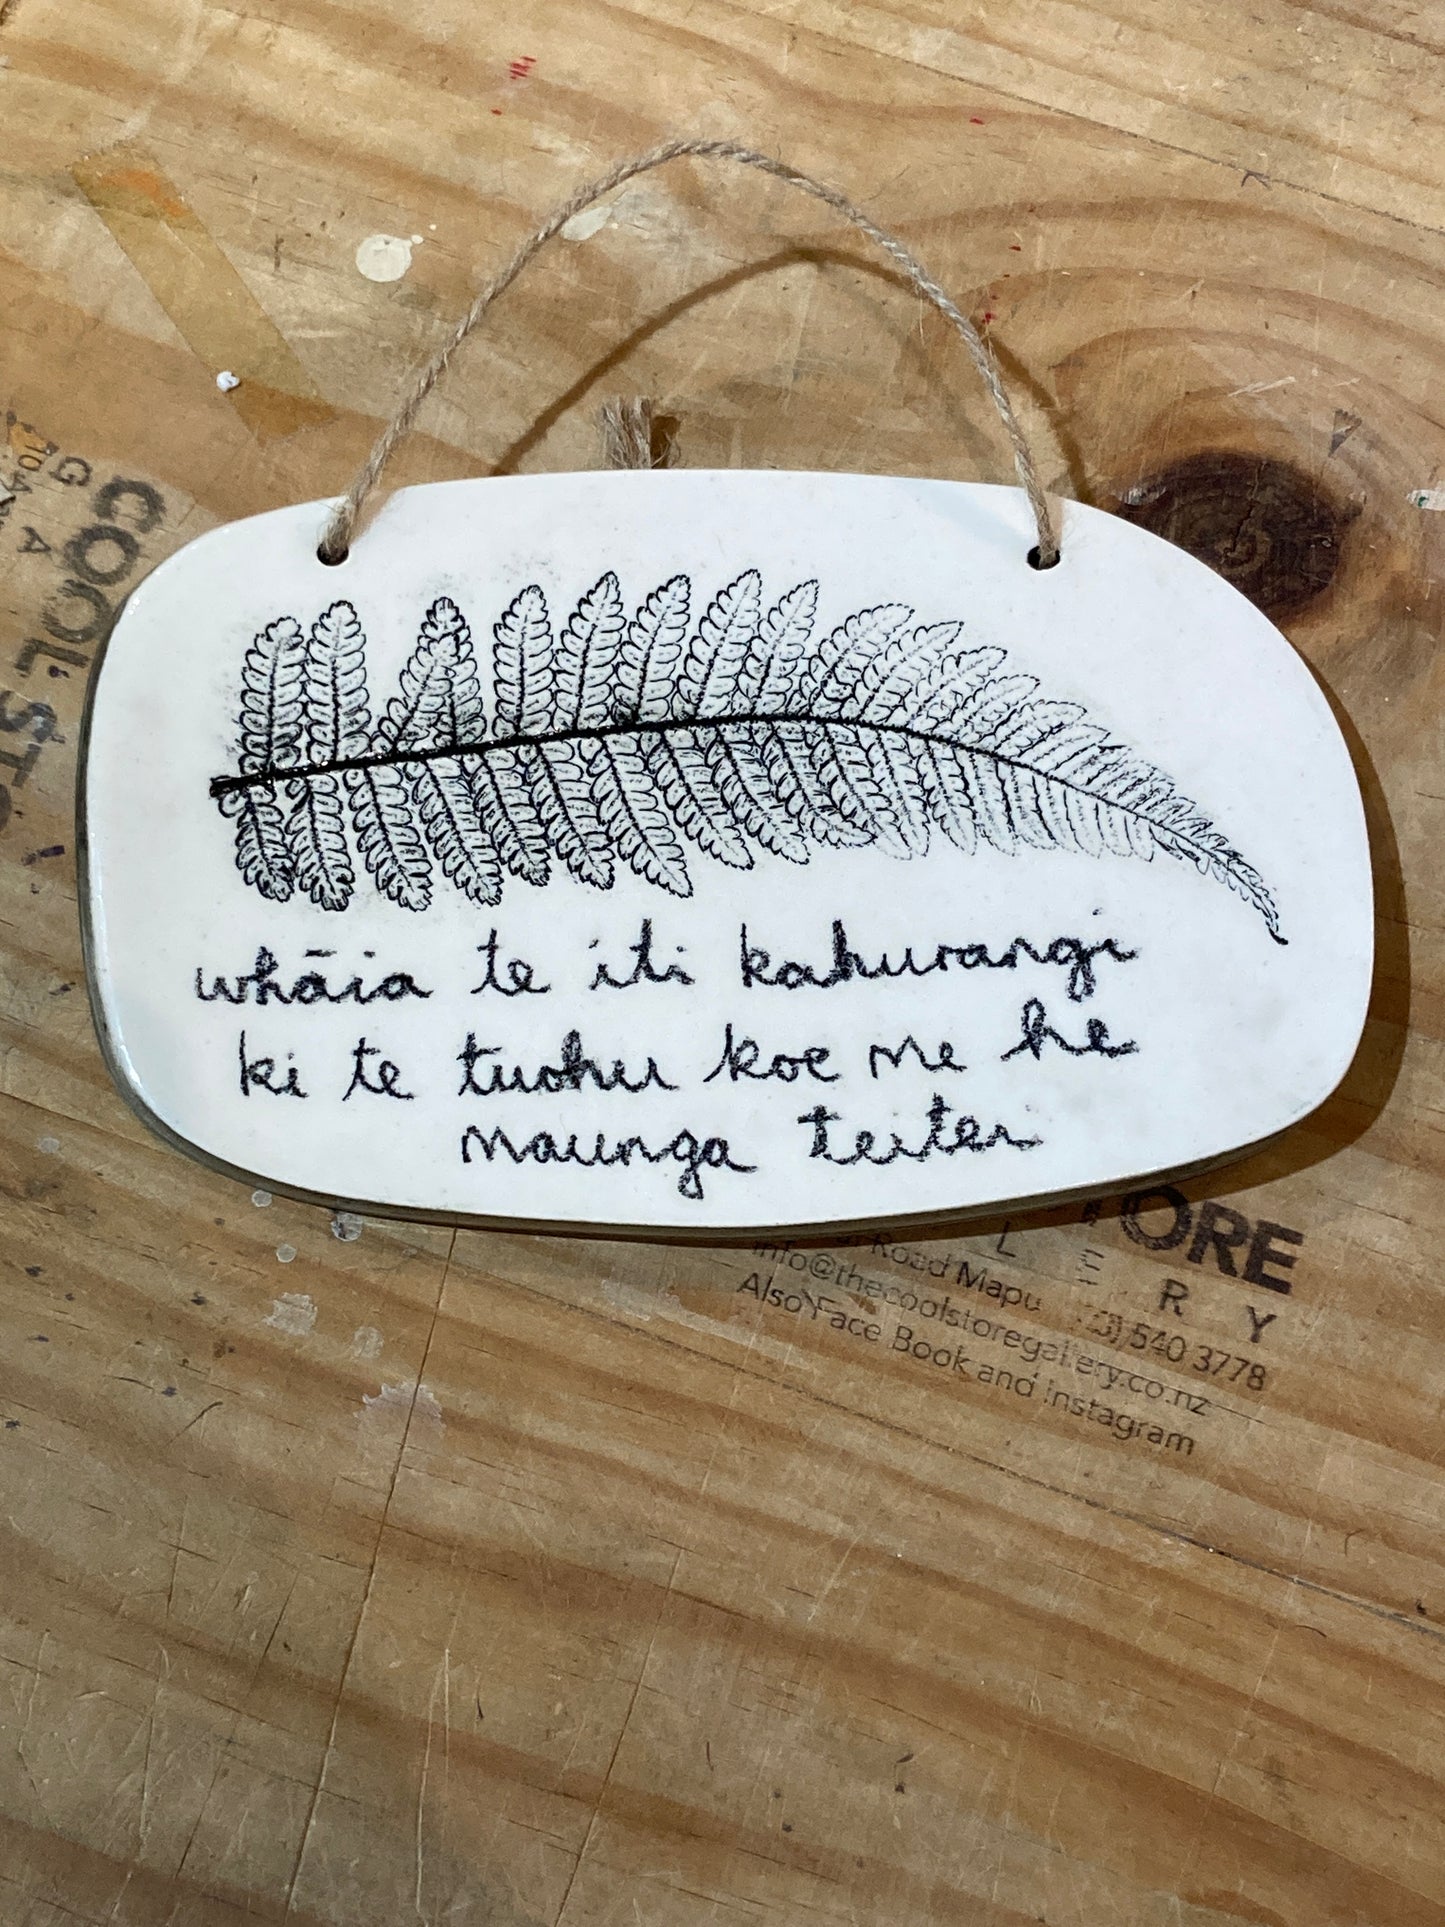 whāia te iti kahurangi
ki te tuohu koe me he
maunga teitei
COOL'STO
GA
ORE
L E R Y
Road Mapu 540 3778
info@thecoolstoregallery.co.nz
Also Face Book and Instagram